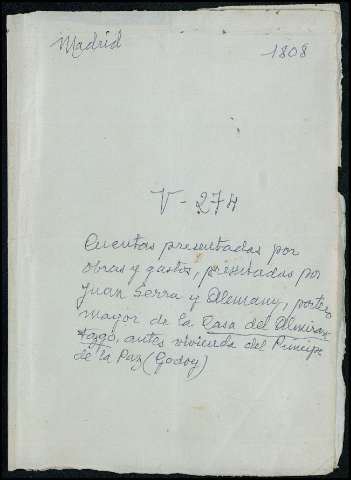 Madrid
1808
V-274
Cuentas presentadas por
obras y gastos, presentadas por
Juan Serra y Alemany, portero
mayor de la Casa del Almiran-
tazgo, antes vivienda del Principe
de la Paz (Godoy)